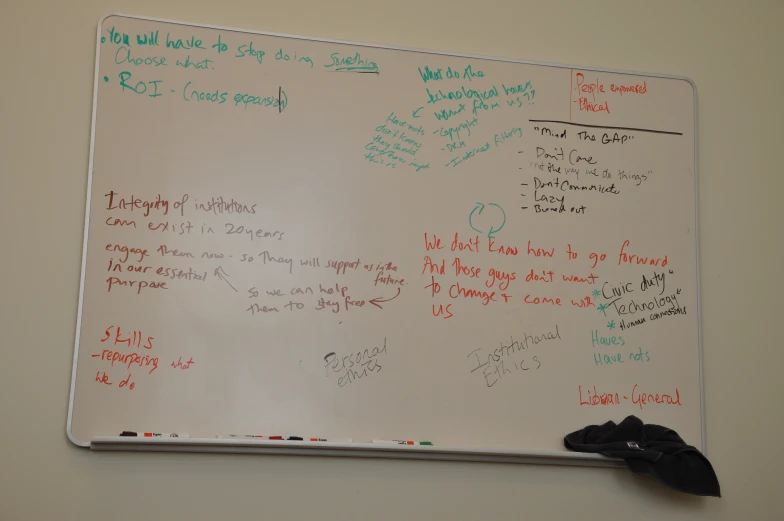 • You will have to stop doing something
Choose what.
• ROI - (needs expansion)
What do the
technological haves
want from us??
- Copyright
- DRM
- Internet filtering
Have nots
don't know
they should
People empowered
- Ethical
"Mind The GAP"
- Don't Care
- "not the way we do things"
- Don't Communicate
- Lazy
- Burned out
Integrity of institutions
can exist in 20 years
engage them now - so they will support us in the
future.
in our essential
purpose
so we can help
them to stay free
We don't know how to go forward
And those guys don't want
to change + come with
us
* "Civic duty"
* "Technology"
* Human connections
Haves
Have nots
Skills
- repurposing what
we do
Personal
ethics
Institutional
Ethics
- General